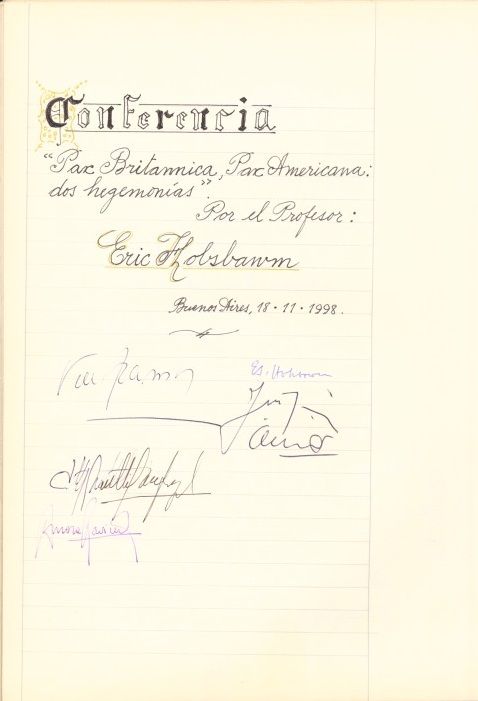 Conferencia
"Pax Britannica, Pax Americana:
dos hegemonías".
Por el Profesor:
Eric Hobsbawm
Buenos Aires, 18·11·1998.